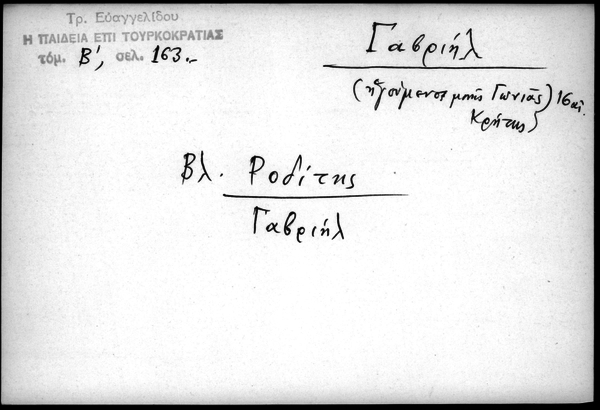 Τρ. Εὐαγγελίδου
Η ΠΑΙΔΕΙΑ ΕΠΙ ΤΟΥΡΚΟΚΡΑΤΙΑΣ
τόμ. Β', σελ. 163.-
Γαβριήλ
(ἡγούμενος μονῆς Γωνιᾶς) 16 αἰ.
Κρήτης)
Βλ. Ροδίτης
Γαβριήλ